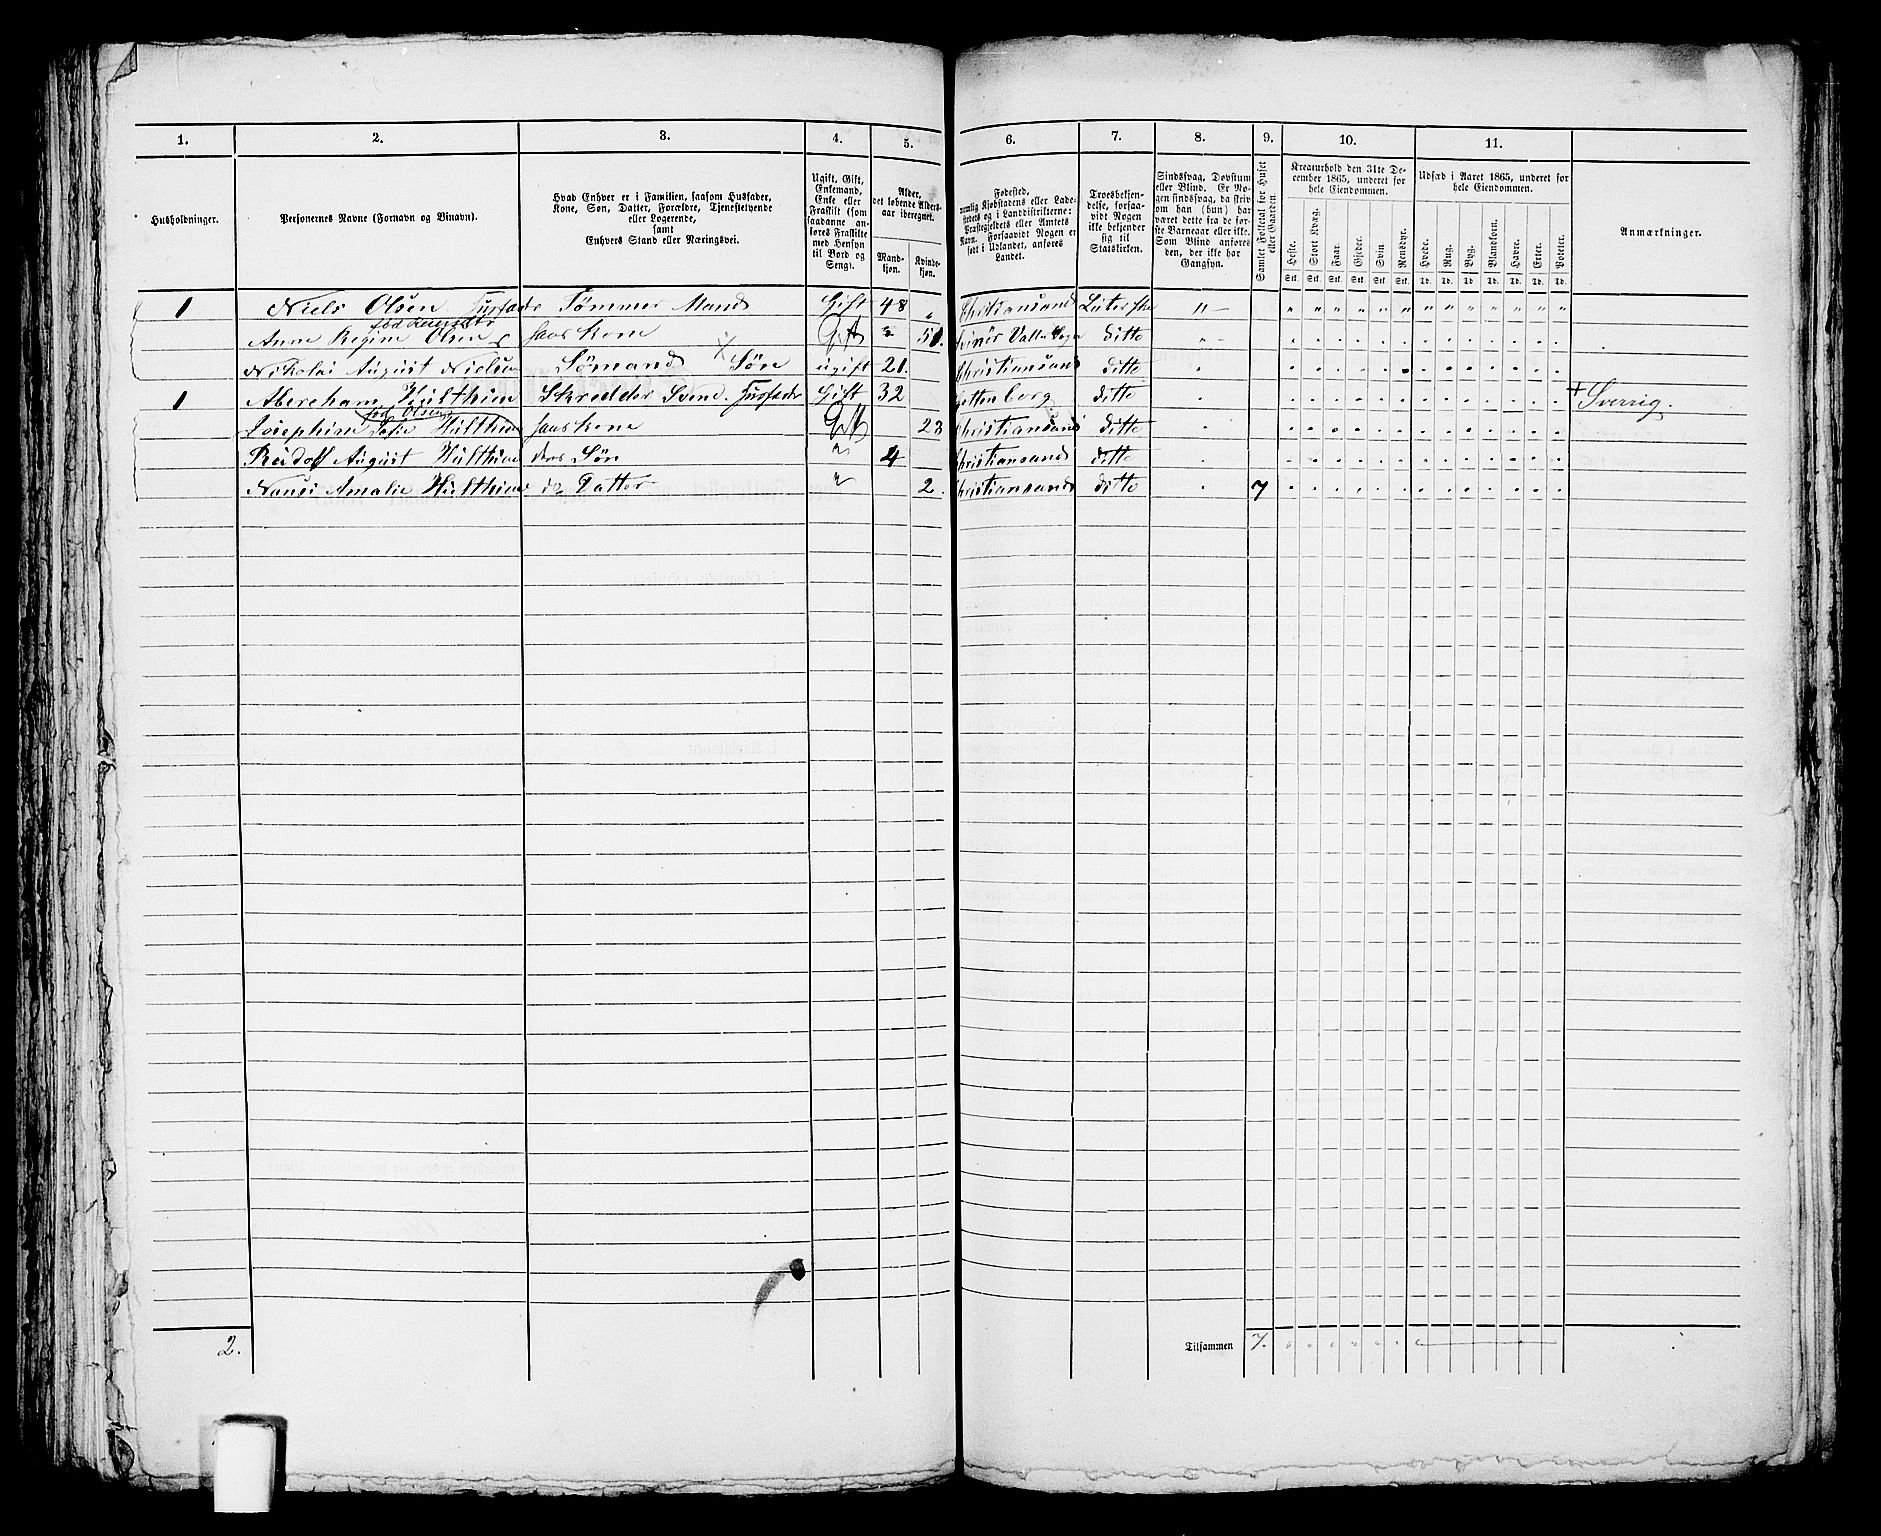 1. 2. 3. 4. 5. 6. 7. 8. 9. 10. 11.
Husholdninger.
Personernes Navne (Fornavn og Binavn).
Hvad Enhver er i Familien, saasom Husfader,
Kone, Søn, Datter, Forældre, Tjenestetyende
eller Logerende,
samt
Enhvers Stand eller Næringsvei.
Ugift, Gift,
Enkemand,
Enke eller
Fraskilt (som
saadanne an-
føres Fraskilte
med Hensyn
til Bord og
Seng).
Alder,
det løbende Alders-
aar iberegnet.
Mand-
kjøn.
Kvinde-
kjøn.
Fødested,
nemlig Kjøbstadens eller Lade-
stedets og i Landdistrikterne:
Præstegjeldets eller Amtets
Navn. Forsaavidt Nogen er
født i Udlandet, anføres
Landet.
Troesbekjen-
delse, forsaa-
vidt Nogen
ikke bekjender
sig til
Statskirken.
Sindssvag, Døvstum
eller Blind. Er No-
gen sindssvag, da skriv
om han (hun) har
været dette fra de før-
ste Barneaar eller ikke.
Som Blind anføres
den, der ikke har
Gangsyn.
Samlet Folketal for Huset
eller Gaarden.
Kreaturhold den 31te De-
cember 1865, underet for
hele Eiendommen.
Heste. Stort Kvæg. Faar. Gjeder. Svin Rensdyr.
Stk. Stk. Stk. Stk. Stk. Stk.
Udsæd i Aaret 1865, underet for
hele Eiendommen.
Hvede. Rug. Byg. Blandkorn. Havre. Erter. Poteter.
Td. Td. Td. Td. Td. Td. Td.
Anmærkninger.
1 Niels Olsen Husfader Tømmer Mand Gift 48 " Christiansand Luterske " -
Anne Regine Olsen haas kone Gift " 51. ditto
Nikolai August Nielsen Sømand Søn ugift 21. Christiansand ditto
1 Abereham Hulthin Skredder Svend. Husfader Gift 32 Gottenborg ditto + Sverrig.
født Olsen
Josephine Sofie Hulthin haas kone Gift 23 Christiansand ditto
Rudolf August Hulthin deres Søn " 4 Christiansand ditto
Nansi Amalie Hulthin do Datter " 2. Christiansand ditto 7
2.
Tilsammen 7.